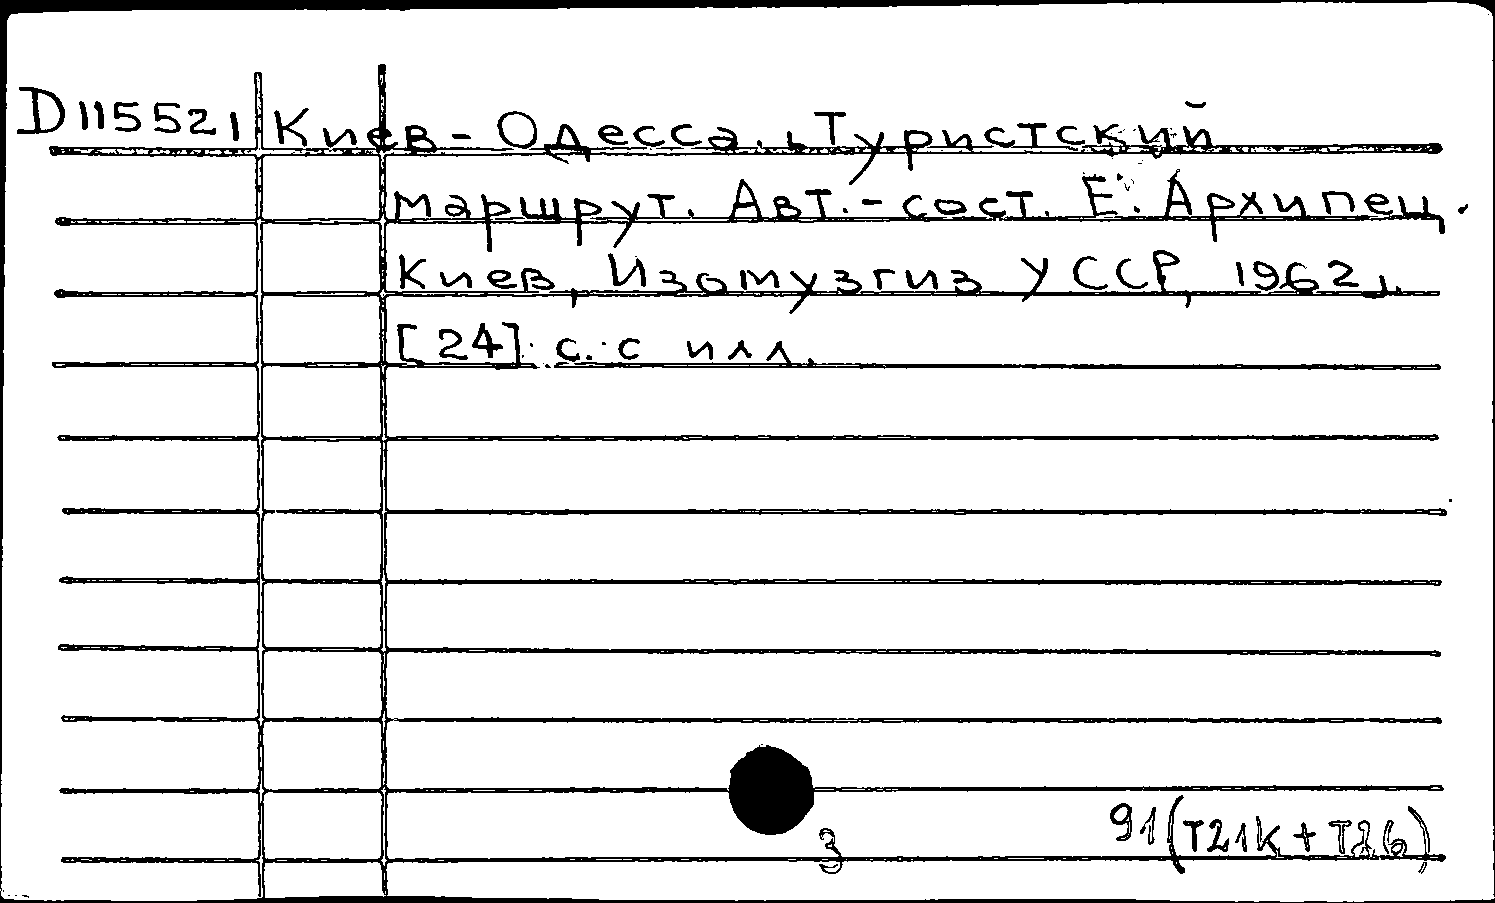 D115521 Киев - Одесса. Туристский
маршрут. Авт.-сост. Е. Архипец.
Киев, Изомузгиз УССР, 1962.
[24] с. с илл.
3
91(Т21К + Т26)